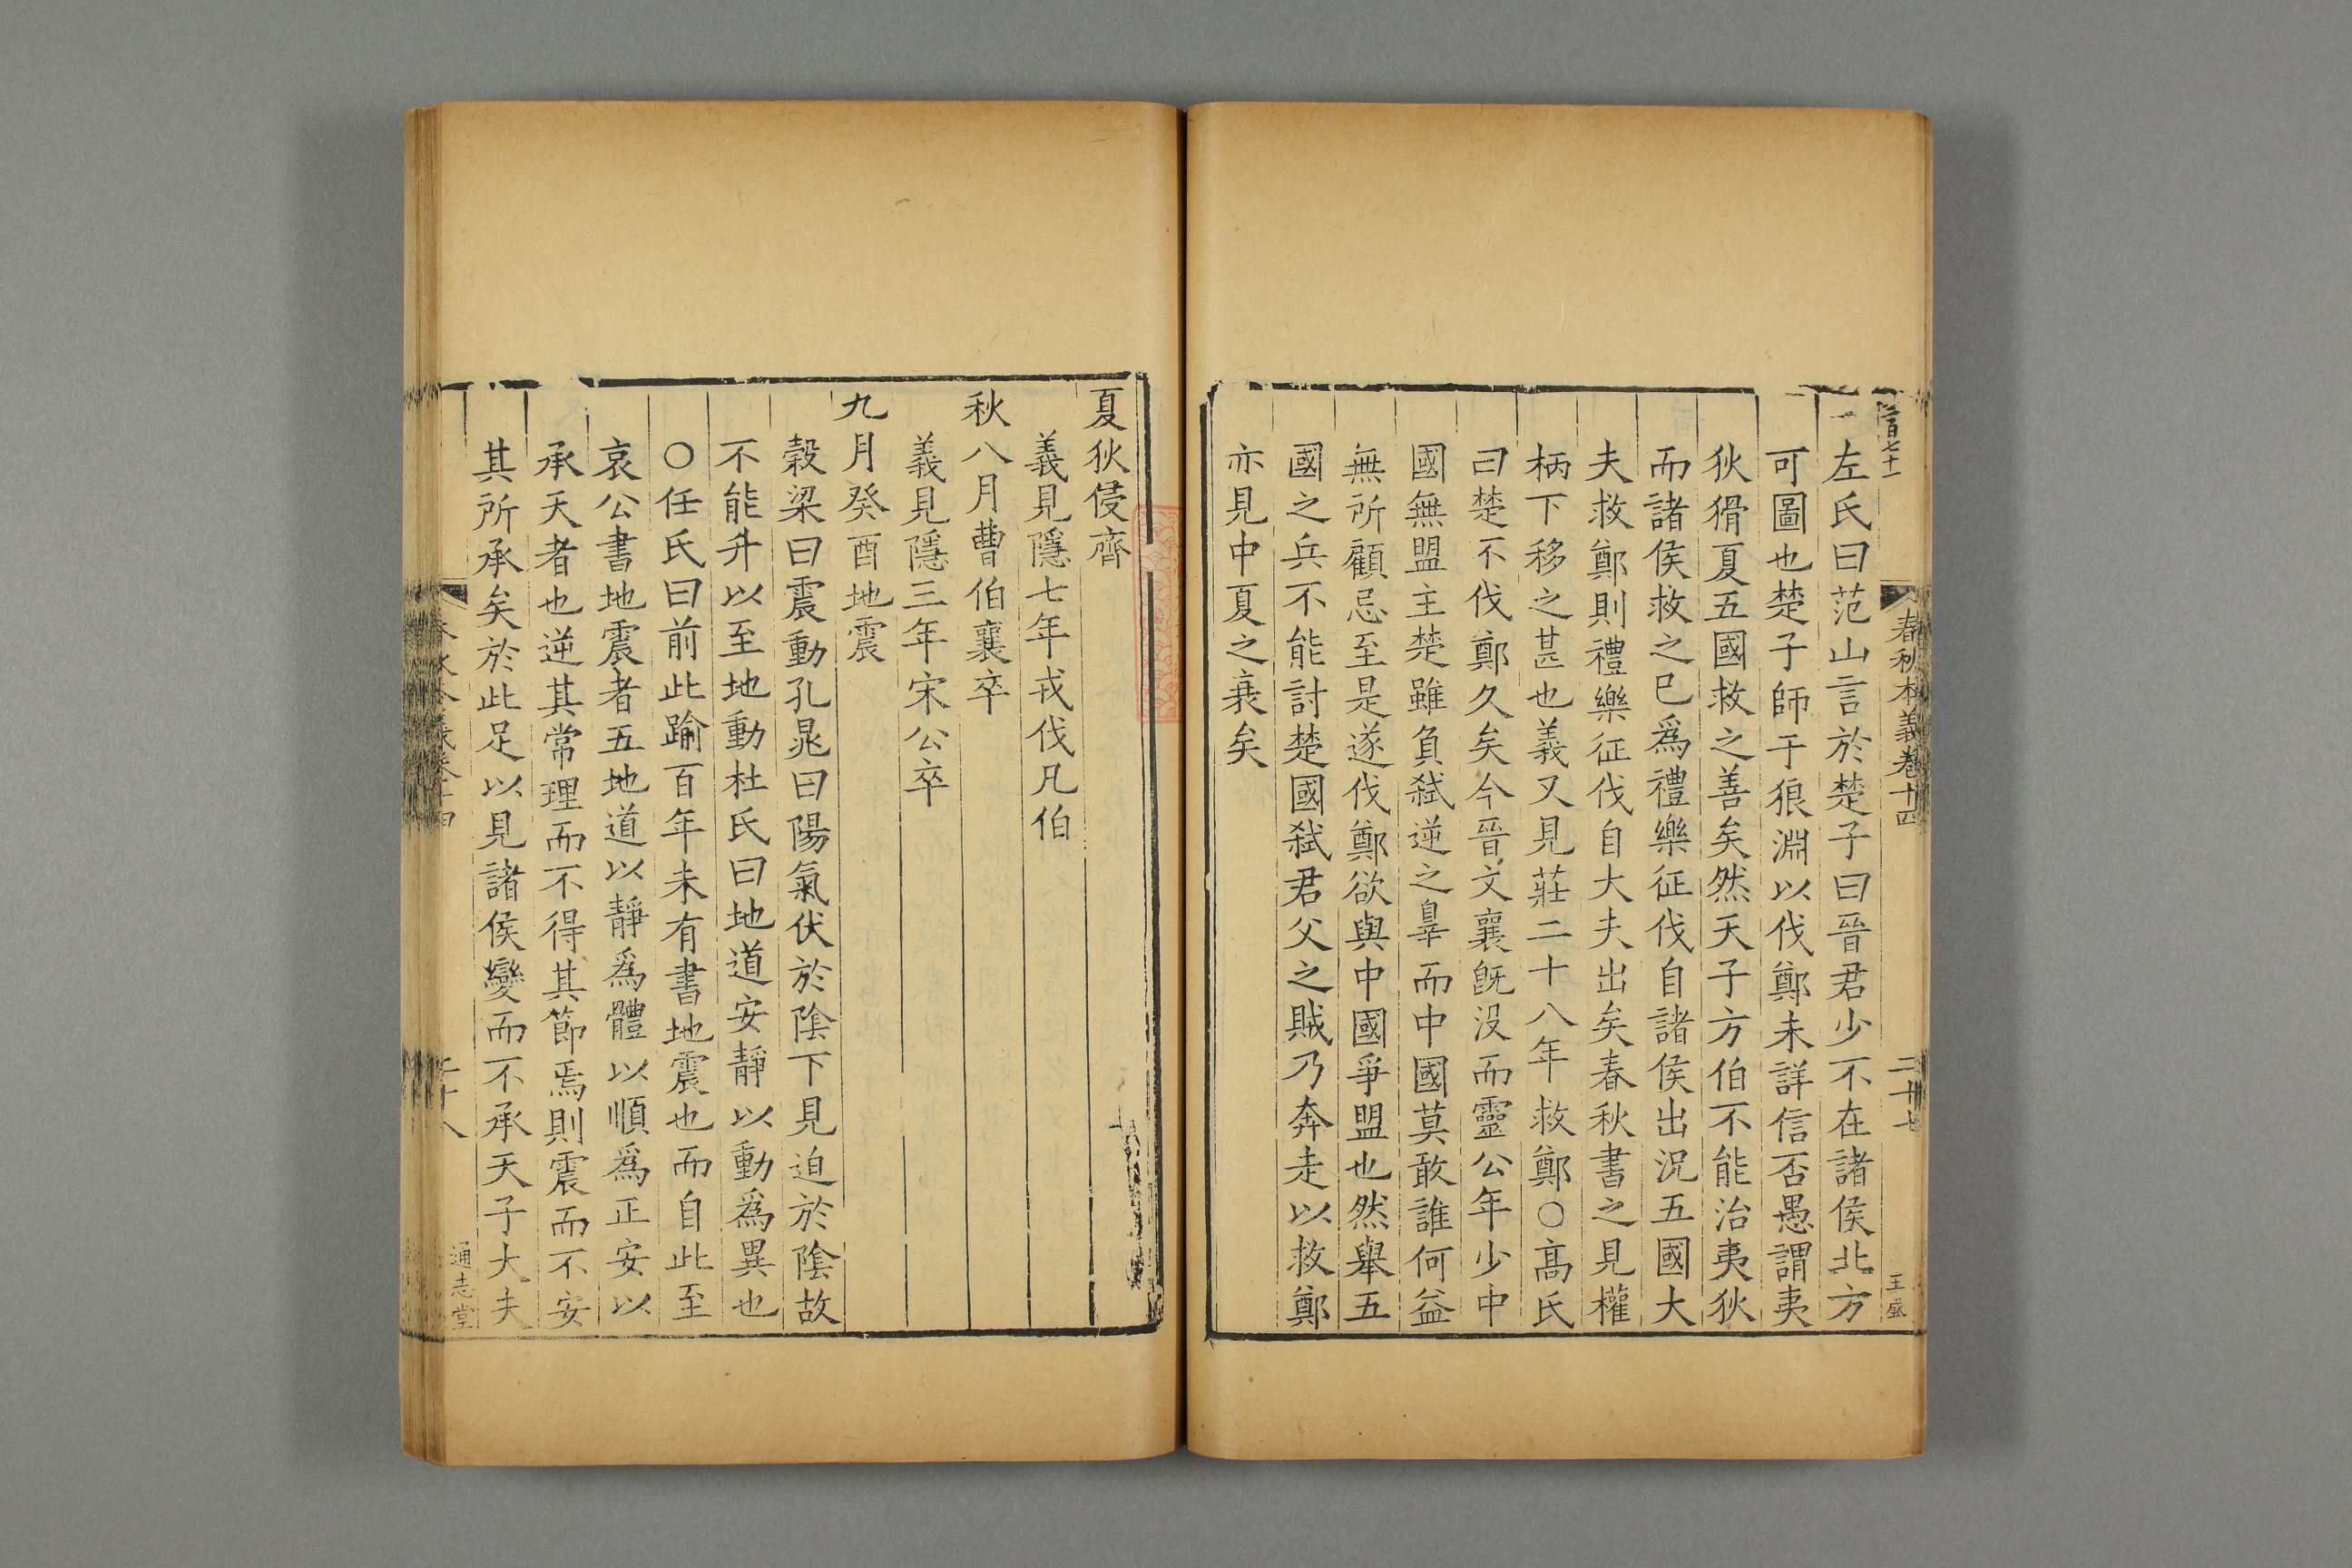 春秋本義卷十四
二十七
王盛
左氏曰范山言於楚子曰晉君少不在諸侯北方
可圖也楚子師于狼淵以伐鄭未詳信否愚謂夷
狄猾夏五國救之善矣然天子方伯不能治夷狄
而諸侯救之已爲禮樂征伐自諸侯出況五國大
夫救鄭則禮樂征伐自大夫出矣春秋書之見權
柄下移之甚也義又見莊二十八年救鄭○髙氏
曰楚不伐鄭久矣今晉文襄旣没而靈公年少中
國無盟主楚雖負弑逆之辠而中國莫敢誰何益
無所顧忌至是遂伐鄭欲與中國爭盟也然舉五
國之兵不能討楚國弑君父之賊乃奔走以救鄭
亦見中夏之衰矣
夏狄侵齊
義見隱七年戎伐凡伯
秋八月曹伯襄卒
義見隱三年宋公卒
九月癸酉地震
榖梁曰震動孔晁曰陽氣伏於陰下見迫於陰故
不能升以至地動杜氏曰地道安靜以動爲異也
○任氏曰前此踰百年未有書地震也而自此至
哀公書地震者五地道以靜爲體以順爲正安以
承天者也逆其常理而不得其節焉則震而不安
其所承矣於此足以見諸侯變而不承天子大夫
通志堂